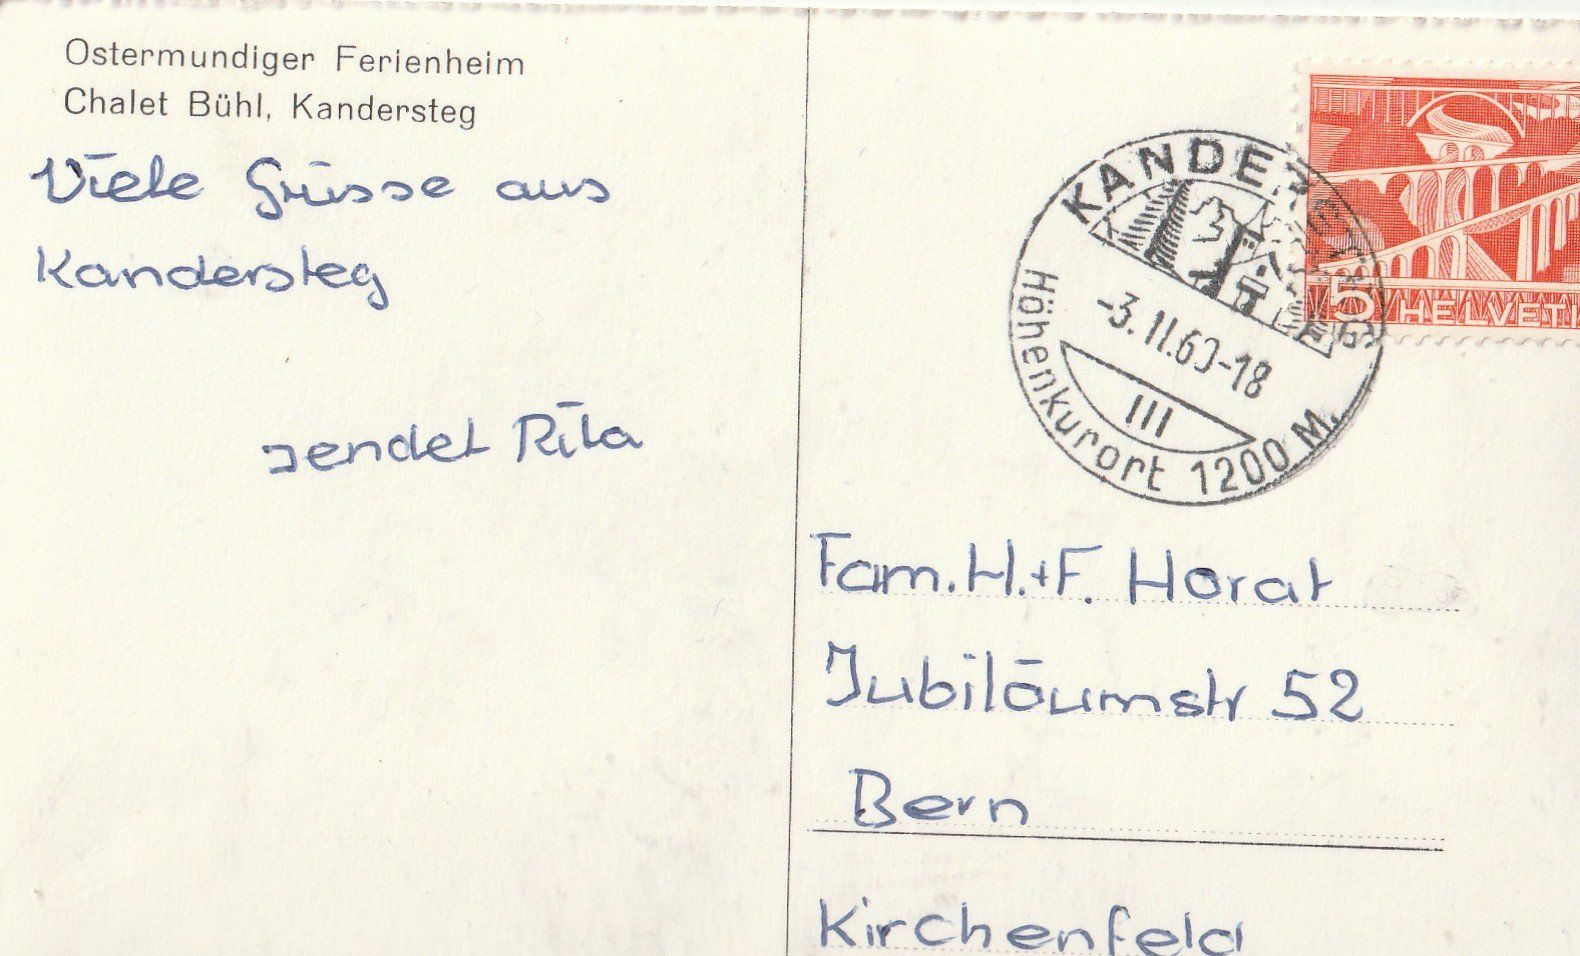 Ostermundiger Ferienheim
Chalet Bühl, Kandersteg
Viele Grüsse aus
Kandersteg
sendet Rita
KANDERSTEG
-3.11.60-18
III
Höhenkurort 1200 M.
5 HELVETI
Fam. H.+F. Horat
Jubiläumstr 52
Bern
Kirchenfeld